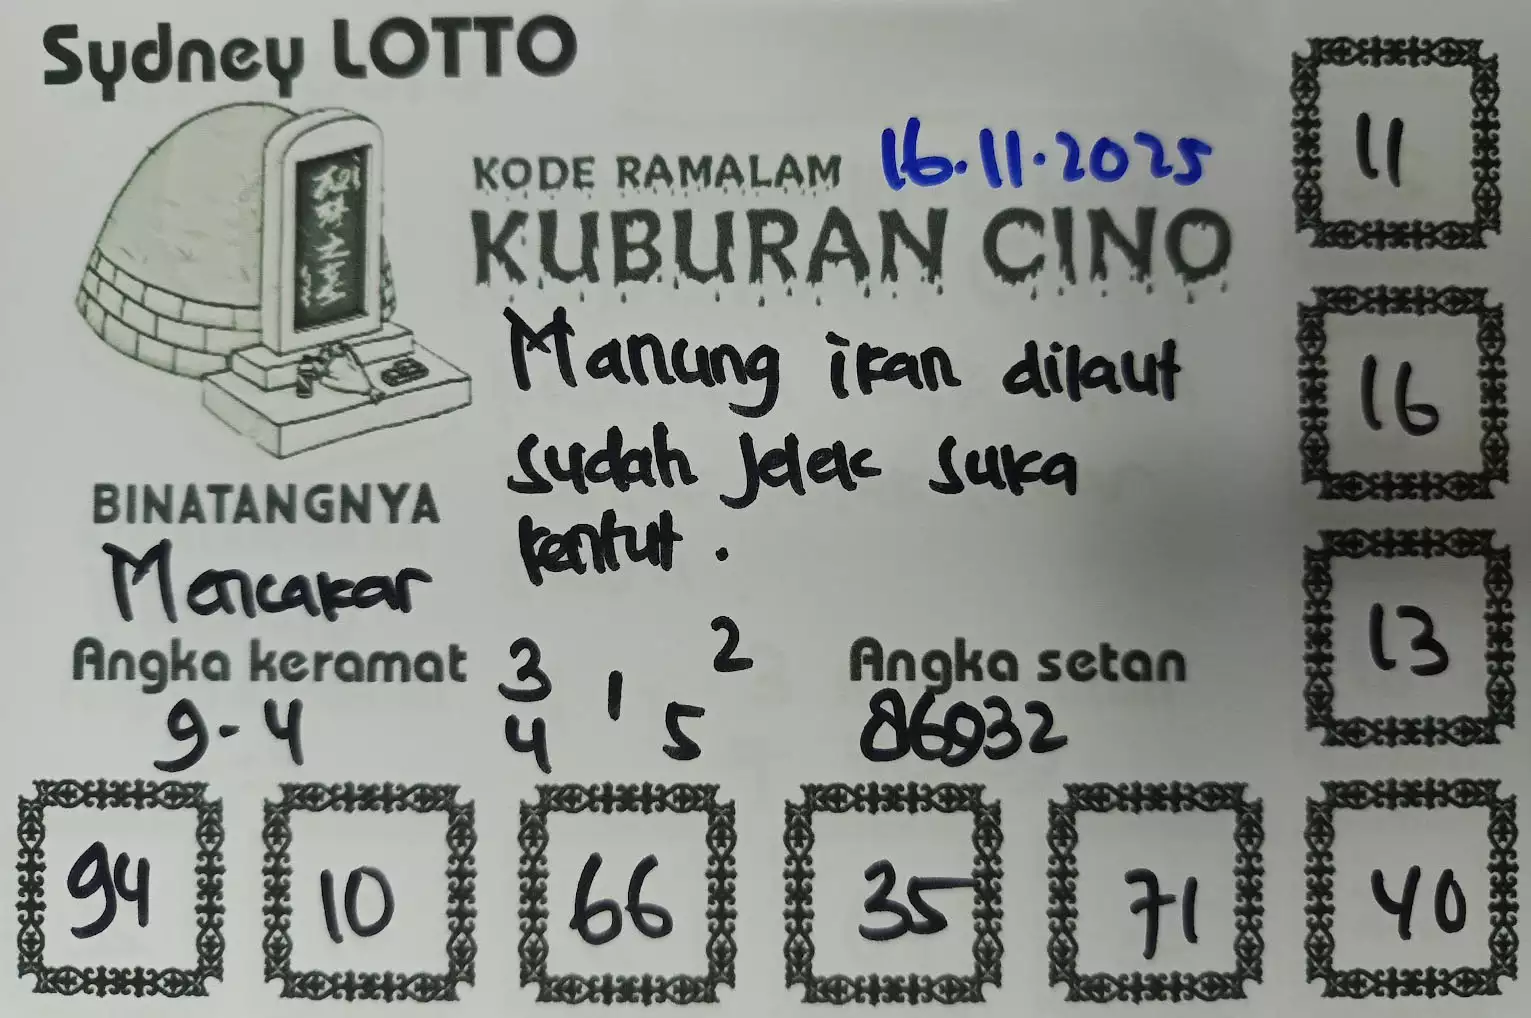 Sydney LOTTO
KODE RAMALAM 16.11.2025
KUBURAN CINO
Mancing ikan dilaut
sudah jelek suka
kentut.
BINATANGNYA
Mencakar
Angka keramat
9-4
3 1 2
4 5
Angka setan
86932
11
16
13
94 10 66 35 71 40